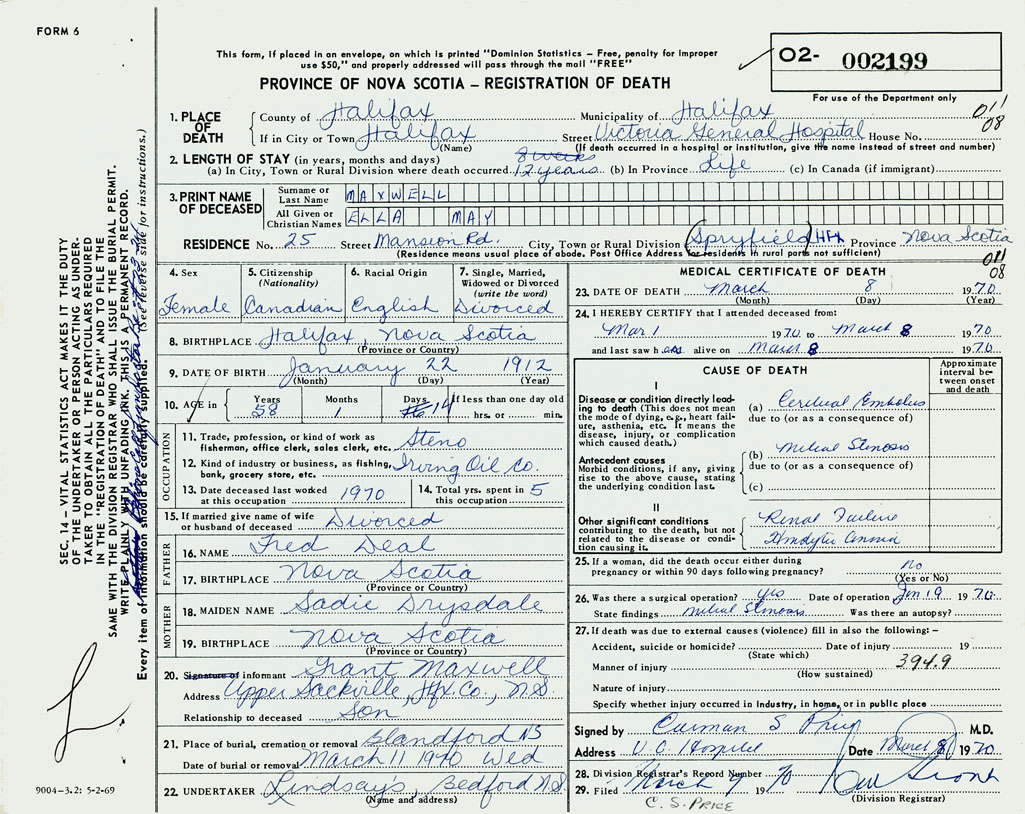 FORM 6
This form, if placed in an envelope, on which is printed "Dominion Statistics – Free, penalty for improper
use $50," and properly addressed will pass through the mail "FREE"
PROVINCE OF NOVA SCOTIA – REGISTRATION OF DEATH
O2- 002199
For use of the Department only
1. PLACE OF DEATH
County of Halifax Municipality of Halifax 011
If in City or Town Halifax Street Victoria General Hospital House No. 08
(Name) (If death occurred in a hospital or institution, give the name instead of street and number)
2. LENGTH OF STAY (in years, months and days) 8 weeks
(a) In City, Town or Rural Division where death occurred 12 years (b) In Province Life (c) In Canada (if immigrant)
3. PRINT NAME OF DECEASED
Surname or Last Name MAXWELL
All Given or Christian Names ELLA MAY
RESIDENCE No. 25 Street Mansion Rd. City, Town or Rural Division Spryfield Hfx Province Nova Scotia
(Residence means usual place of abode. Post Office Address for residents in rural parts not sufficient) 011
08
4. Sex Female
5. Citizenship (Nationality) Canadian
6. Racial Origin English
7. Single, Married, Widowed or Divorced (write the word) Divorced
8. BIRTHPLACE Halifax, Nova Scotia
(Province or Country)
9. DATE OF BIRTH January 22 1912
(Month) (Day) (Year)
10. AGE in Years 58 Months 1 Days 14 If less than one day old hrs. or min.
OCCUPATION
11. Trade, profession, or kind of work as fisherman, office clerk, sales clerk, etc. Steno
12. Kind of industry or business, as fishing, bank, grocery store, etc. Irving Oil Co.
13. Date deceased last worked at this occupation 1970
14. Total yrs. spent in this occupation 5
15. If married give name of wife or husband of deceased Divorced
FATHER
16. NAME Fred Deal
17. BIRTHPLACE Nova Scotia
(Province or Country)
MOTHER
18. MAIDEN NAME Sadie Drysdale
19. BIRTHPLACE Nova Scotia
(Province or Country)
20. Signature of informant Grant Maxwell
Address Upper Sackville, Hfx. Co., N.S.
Relationship to deceased Son
21. Place of burial, cremation or removal Blandford NS
Date of burial or removal March 11 1970 Wed
22. UNDERTAKER Lindsay's, Bedford N.S.
(Name and address)
MEDICAL CERTIFICATE OF DEATH
23. DATE OF DEATH March 8 1970
(Month) (Day) (Year)
24. I HEREBY CERTIFY that I attended deceased from:
Mar 1 1970 to March 8 1970
and last saw her alive on March 8 1970
CAUSE OF DEATH
Approximate interval between onset and death
I
Disease or condition directly leading to death (This does not mean the mode of dying, e.g., heart failure, asthenia, etc. It means the disease, injury, or complication which caused death.)
(a) Cerebual Embolus
due to (or as a consequence of)
Antecedent causes
Morbid conditions, if any, giving rise to the above cause, stating the underlying condition last.
(b) Mitral Stenosis
due to (or as a consequence of)
(c)
II
Other significant conditions contributing to the death, but not related to the disease or condition causing it.
Renal Failure
Hemolytic Anemia
25. If a woman, did the death occur either during pregnancy or within 90 days following pregnancy? no
(Yes or No)
26. Was there a surgical operation? yes Date of operation Jan 19 1970
State findings Mitral Stenosis Was there an autopsy?
27. If death was due to external causes (violence) fill in also the following: –
Accident, suicide or homicide? Date of injury 19
(State which)
Manner of injury 394.9
(How sustained)
Nature of injury
Specify whether injury occurred in Industry, in home, or in public place
Signed by Carman S Price M.D.
Address V.G. Hospital Date March 8 1970
28. Division Registrar's Record Number
29. Filed March 9 1970
(Division Registrar)
C. S. PRICE
9004-3.2: 5-2-69
SEC. 14 – VITAL STATISTICS ACT MAKES IT THE DUTY
OF THE UNDERTAKER OR PERSON ACTING AS UNDER-
TAKER TO OBTAIN ALL THE PARTICULARS REQUIRED
IN THE "REGISTRATION OF DEATH" AND TO FILE THE
SAME WITH THE DIVISION REGISTRAR WHO SHALL ISSUE THE BURIAL PERMIT.
WRITE PLAINLY WITH UNFADING INK. THIS IS A PERMANENT RECORD.
Every item of information should be carefully supplied. (See reverse side for instructions.)